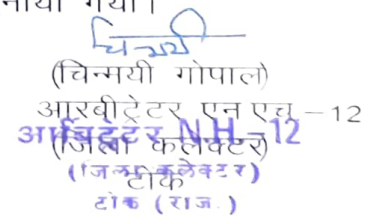 नाया गया।
चिन्मयी
(चिन्मयी गोपाल)
आरबीट्रेटर एन एच – 12
आर्बिट्रेटर N.H.-12
(जिला कलेक्टर)
(जिला कलेक्टर)
टोंक
टोंक (राज.)